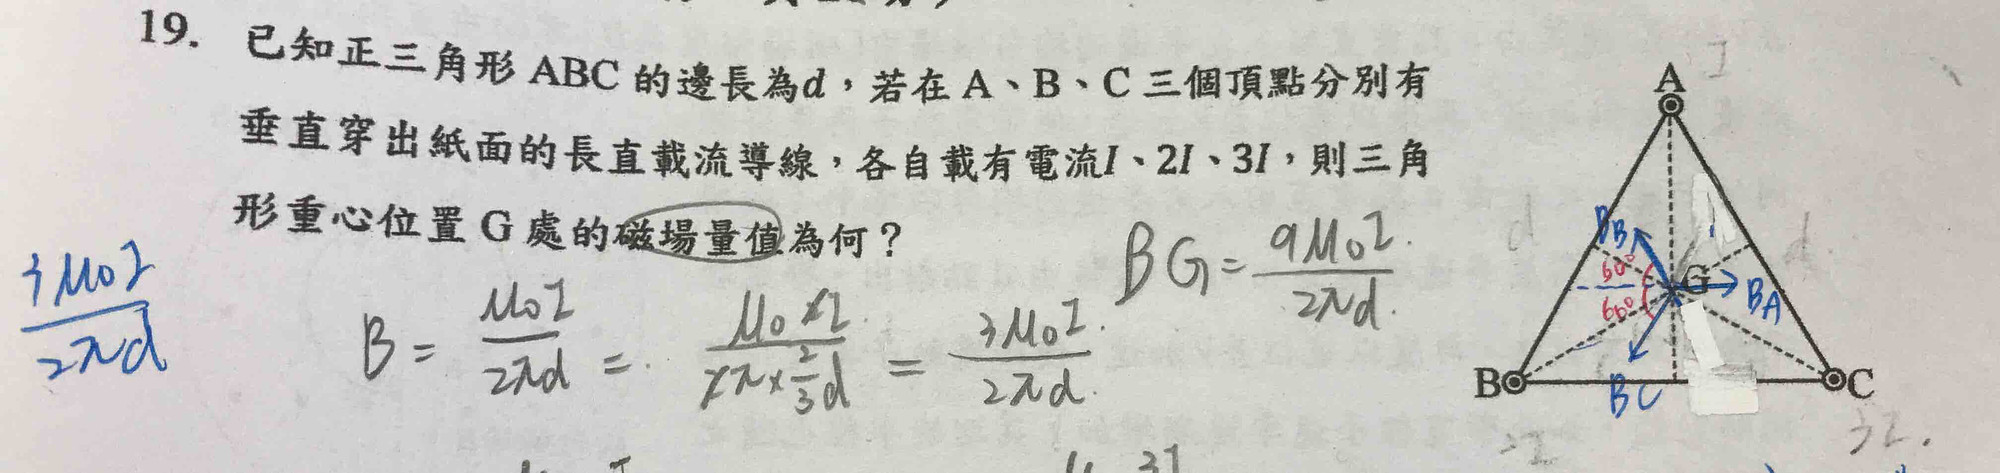 19. 已知正三角形 ABC 的邊長為d，若在 A、B、C 三個頂點分別有
垂直穿出紙面的長直載流導線，各自載有電流I、2I、3I，則三角
形重心位置 G 處的磁場量值為何？
BG = 9μ₀I / 2πd
3μ₀I / 2πd
B = μ₀I / 2πd = μ₀×I / 2π×2/3d = 3μ₀I / 2πd
I
A
d
d
B_B
60°
G
B_A
60°
B
B_C
C
2I
3I